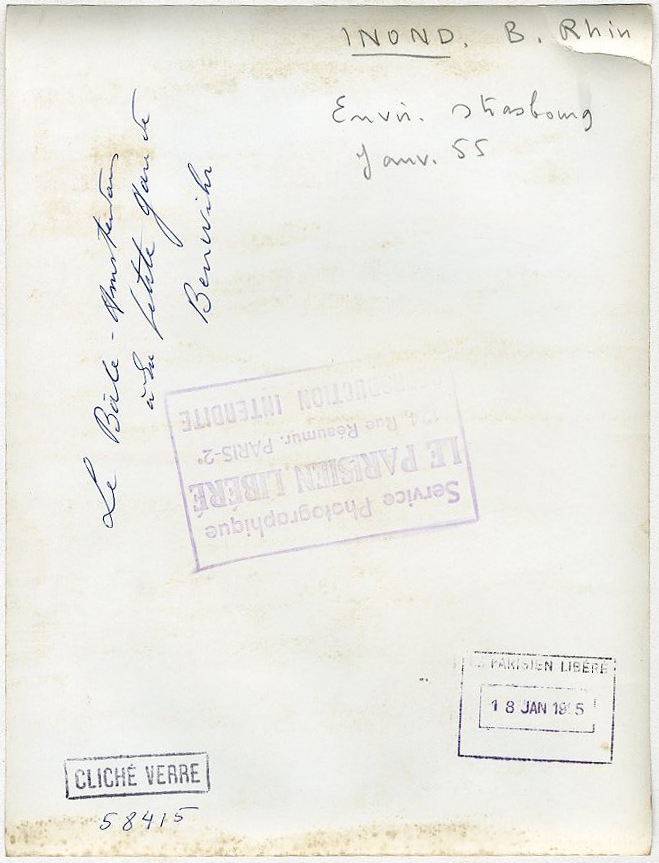 INOND. B. Rhin
Envir. Strasbourg
Janv. 55
Le Bâle-Amsterdam
à la petite gare de
Benwihr
Service Photographique
LE PARISIEN LIBÉRÉ
124, Rue Réaumur. PARIS-2e
REPRODUCTION INTERDITE
LE PARISIEN LIBÉRÉ
18 JAN 1955
CLICHÉ VERRE
58415